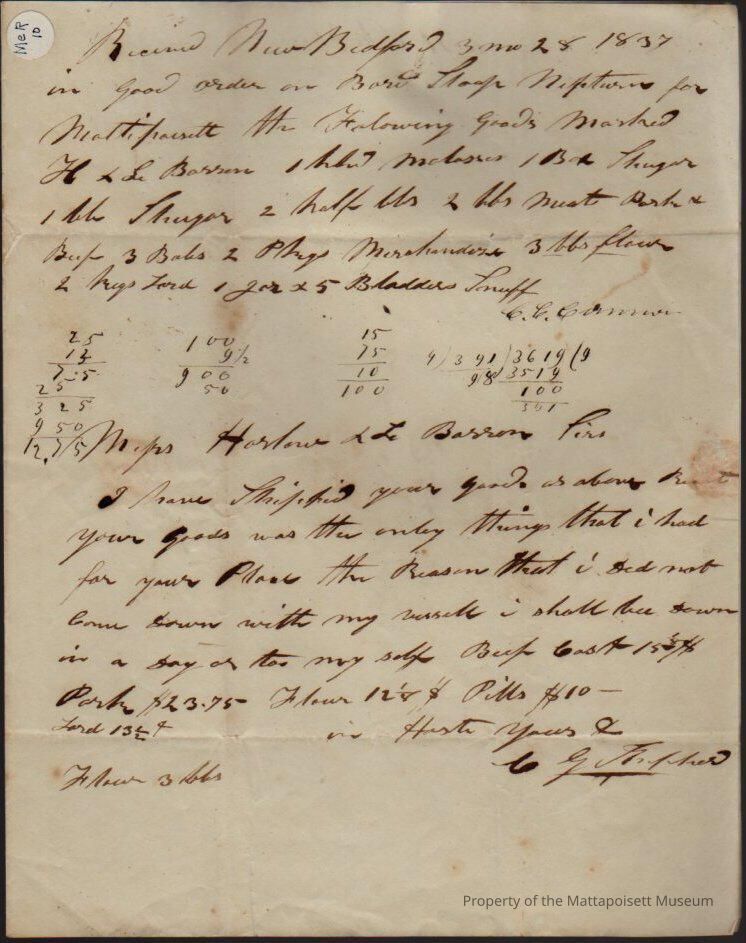 MeR
10
Received New Bedford 3 mo 28 1837
in good order on Bord Sloop Neptune for
Mattipoisett the Folowing goods Marked
H & Le Barron 1 hhd molasses 1 Box Shugar
1 bb Shugar 2 half bbs 2 bbs Meat Pork &
Beef 3 Bals 2 Pkgs Merchandize 3 bbs flour
2 kegs Lard 1 Jar & 5 Bladders Snuff
25 100 15
13 9 1/2 75 9) 391) 3619 (9
7.5 900 10 98) 3519
25 50 100 100
3 25 391
9 50
12,75
Messrs Harlow & Le Barron Sirs
I have Shippid your goods as above
your goods was the onley things that i had
for your Place the Reason that i Ded not
Come Down with my vessell i shall bee Down
in a Day or too my self Beef Cost 15 $
Pork $23.75 Flour 12 $ Pills $10 —
Lard 13½ in Hast Yours &
C G
Flour 3 bbs
Property of the Mattapoisett Museum